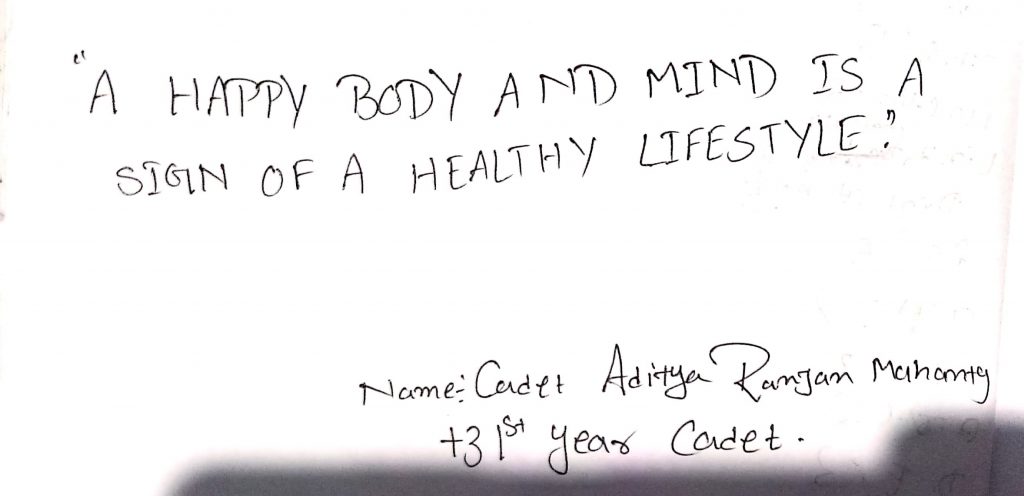 "A HAPPY BODY AND MIND IS A
SIGN OF A HEALTHY LIFESTYLE."
Name: Cadet Aditya Ranjan Mahanty
+3 1st year Cadet.